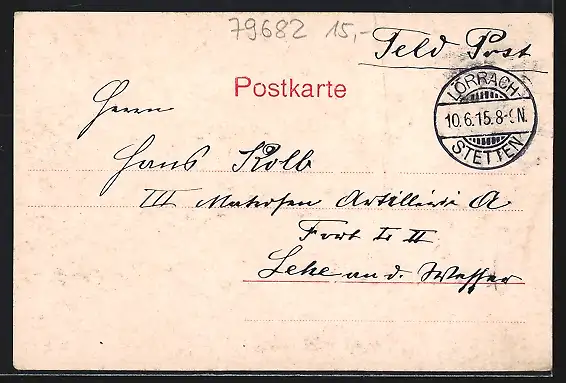 79682 15,-
Feld Post
Postkarte
LÖRRACH.
10.6.15.8-9N.
STETTEN
Herrn
Hans Kolb
III Matrosen Artillerie A
Fort II
Lehe an d. Weser